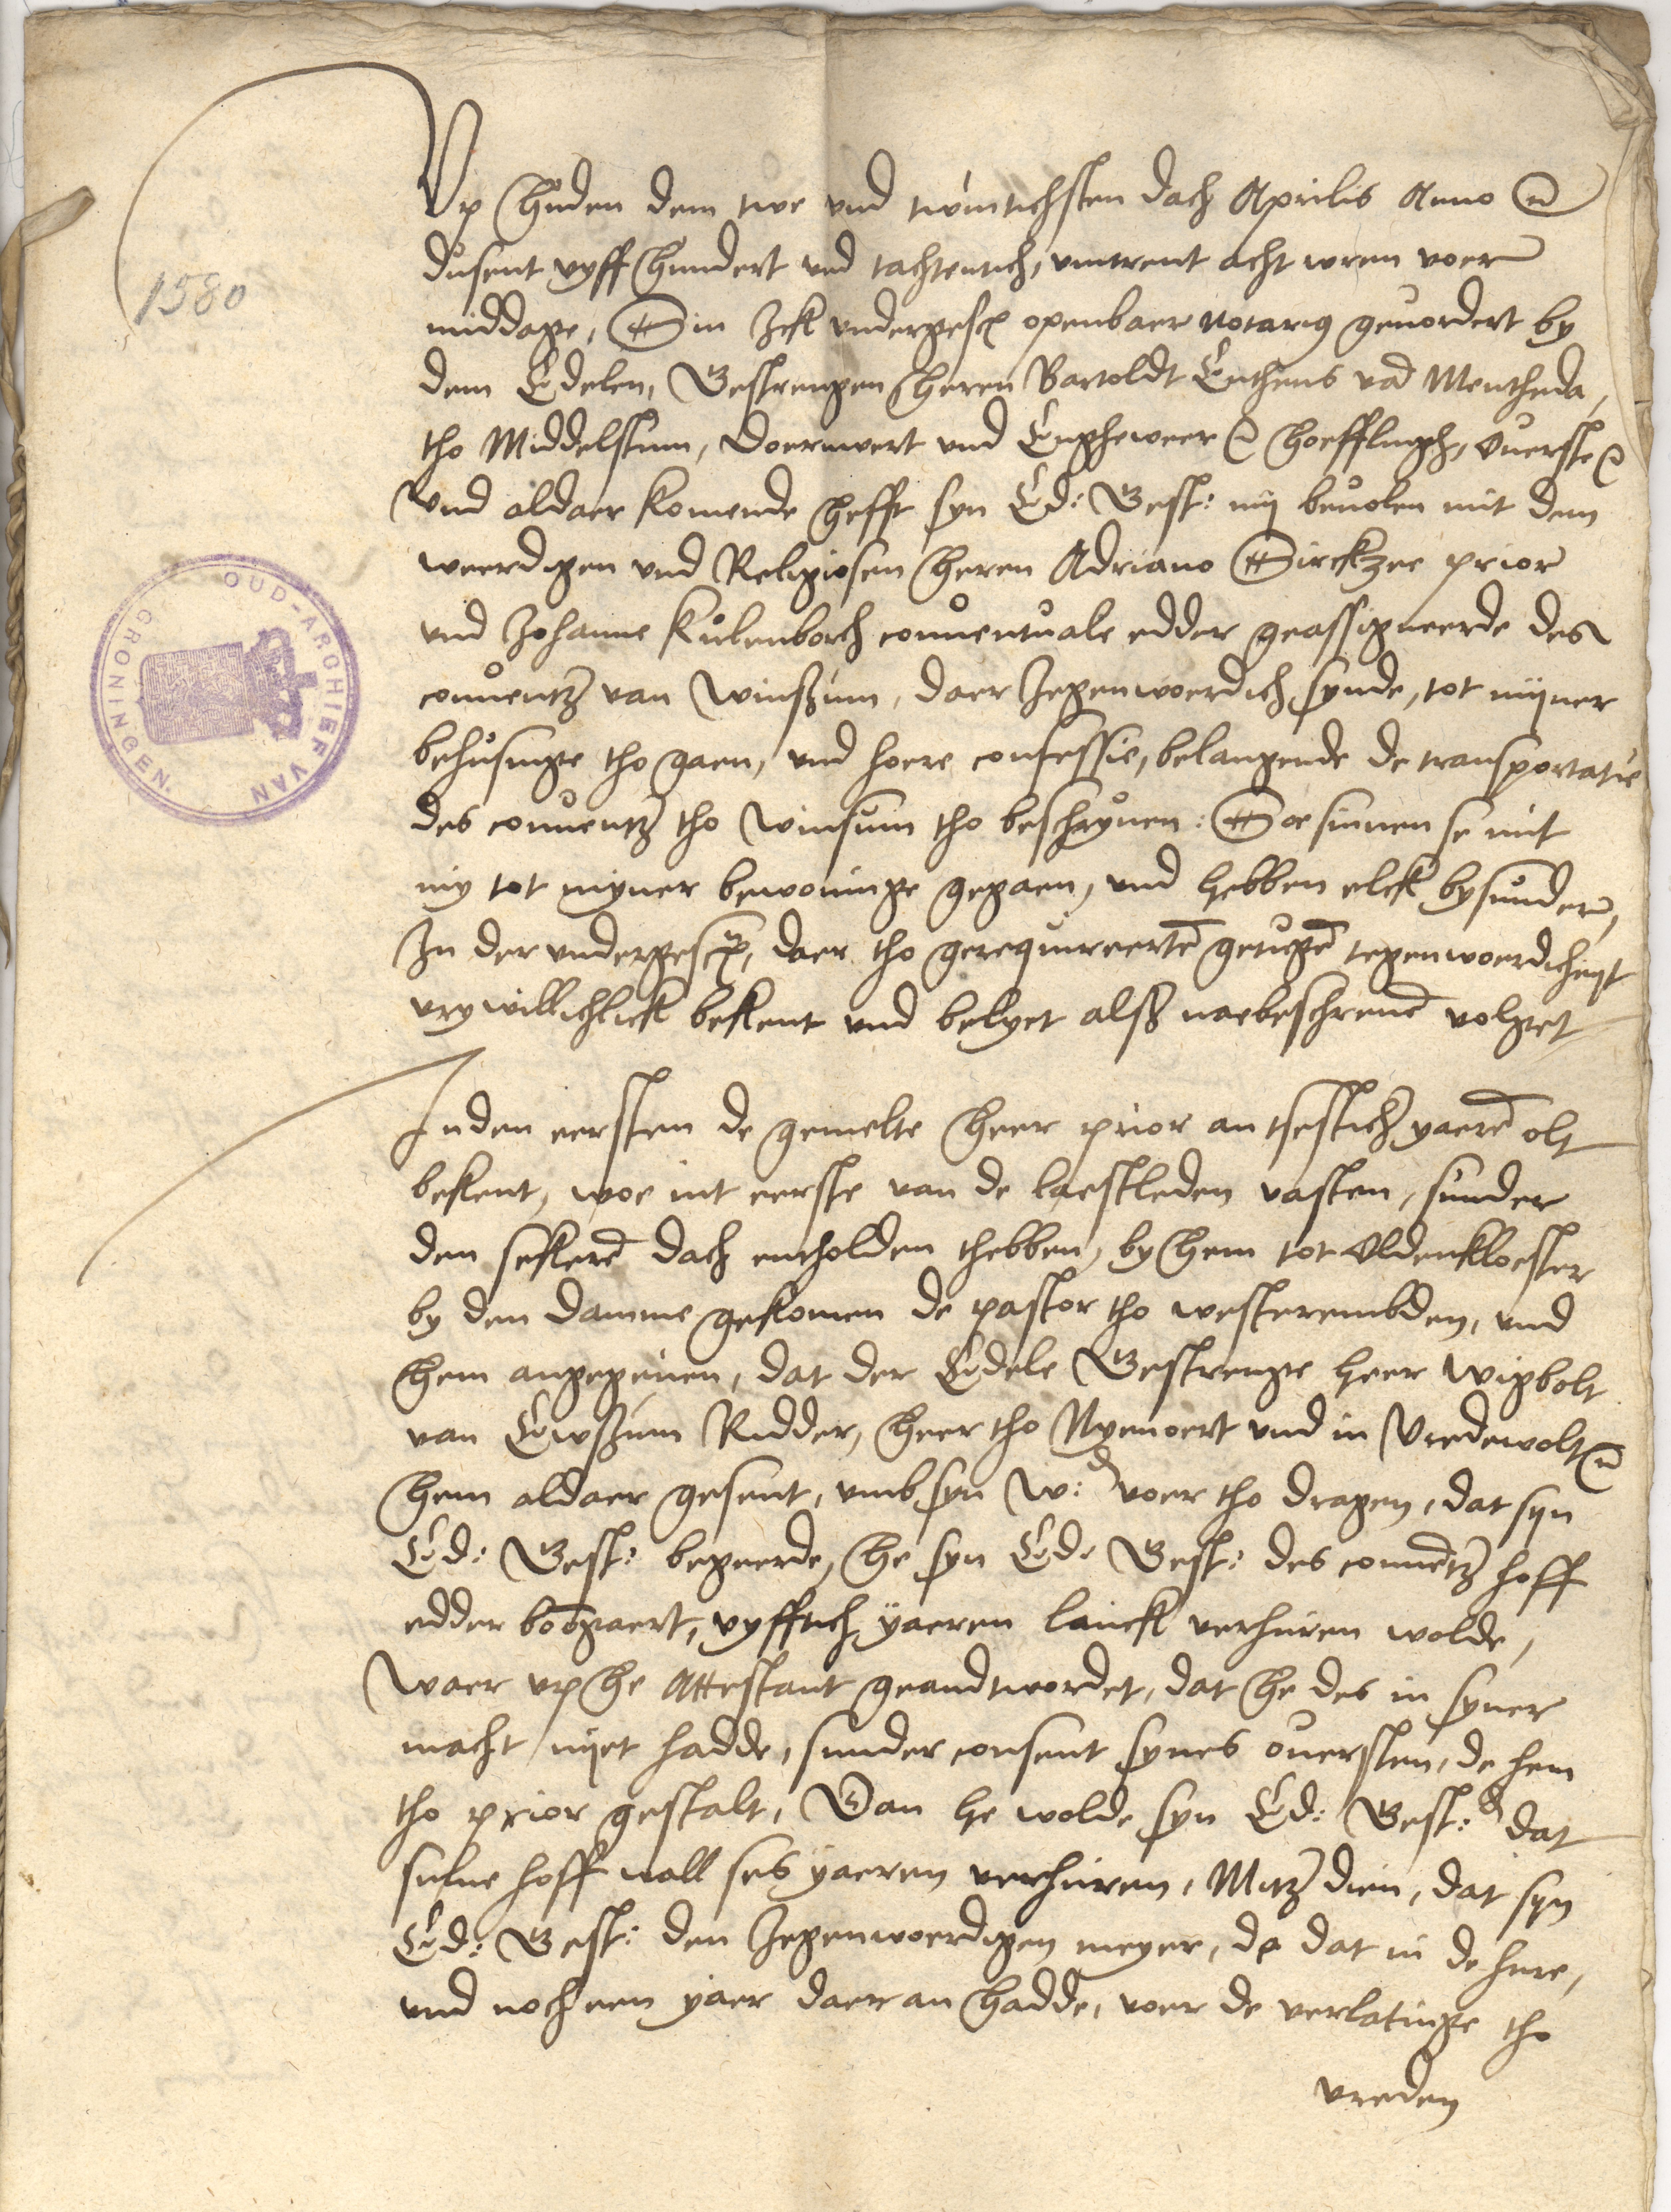 Up huden dem twe und twintichsten dach Aprilis Anno
dusent vyff hundert und tachtentich, umtrent acht uren voer
1580
middage, Bin Ick undergescr openbaer Notarius gevordert by
dem Edelen, Gestrengen heren Bartoldt Entens van Mentheda,
tho Middelstum, Doernwert und Engheweer hoefflingh, Overste
Und aldaer komende hefft syn Ed: Gest: my bevolen mit dem
weerdigen und Religiosen heren Adriano Dirckzee prior
und Johanne Kulenborch conventuale edder geassigneerde des
conventz van Winßum, daer Jegenwoerdich synde, tot mijner
behusinge tho gaen, und hoere confessie, belangende de transportatie
des conventz tho Winsum tho beschryven: Soe sinnen se mit
my tot myner bewoninge gegaen, und hebben elck bysunder,
In der undergescr, daer tho gerequireertē getugē tegenwoerdicheyt
vrywillichlick bekent und belyet alß naebeschrevē volget
OUD-ARCHIEF VAN GRONINGEN.
Inden eersten de gemelte heer prior an tsestich yaerē olt
bekent, woe int eerste van de laestleden vasten, sunder
den sekerē dach entholden thebben, by hem tot Oldenkloester
by den Damme gekomen de pastor tho westerembden, und
hem angegeven, dat der Edele Gestrenge heer Wigbolt
van Ewsum Ridder, heer tho Nyenoert und in Vredewolt
hem aldaer gesent, umb syn W: voer tho dragen, dat syn
Ed: Gest: begeerde, he syn Ed: Gest: des convētz hoff
edder bōōgaert, vyfftich yaeren lanck verhuren wolde,
Waer up he Attestant geandtwordet, dat he des in syner
macht nyet hadde, sunder consent synes oversten, de hem
tho prior gestalt, Dan he wolde syn Ed: Gest: dat
sulve hoff wall ses yaeren verhuren, Mitz dien, dat syn
Ed: Gest: den Jegenwoerdigen meyer, de dat in de hure,
und noch een yaer daer an hadde, voer de verlatinge tho
vreden